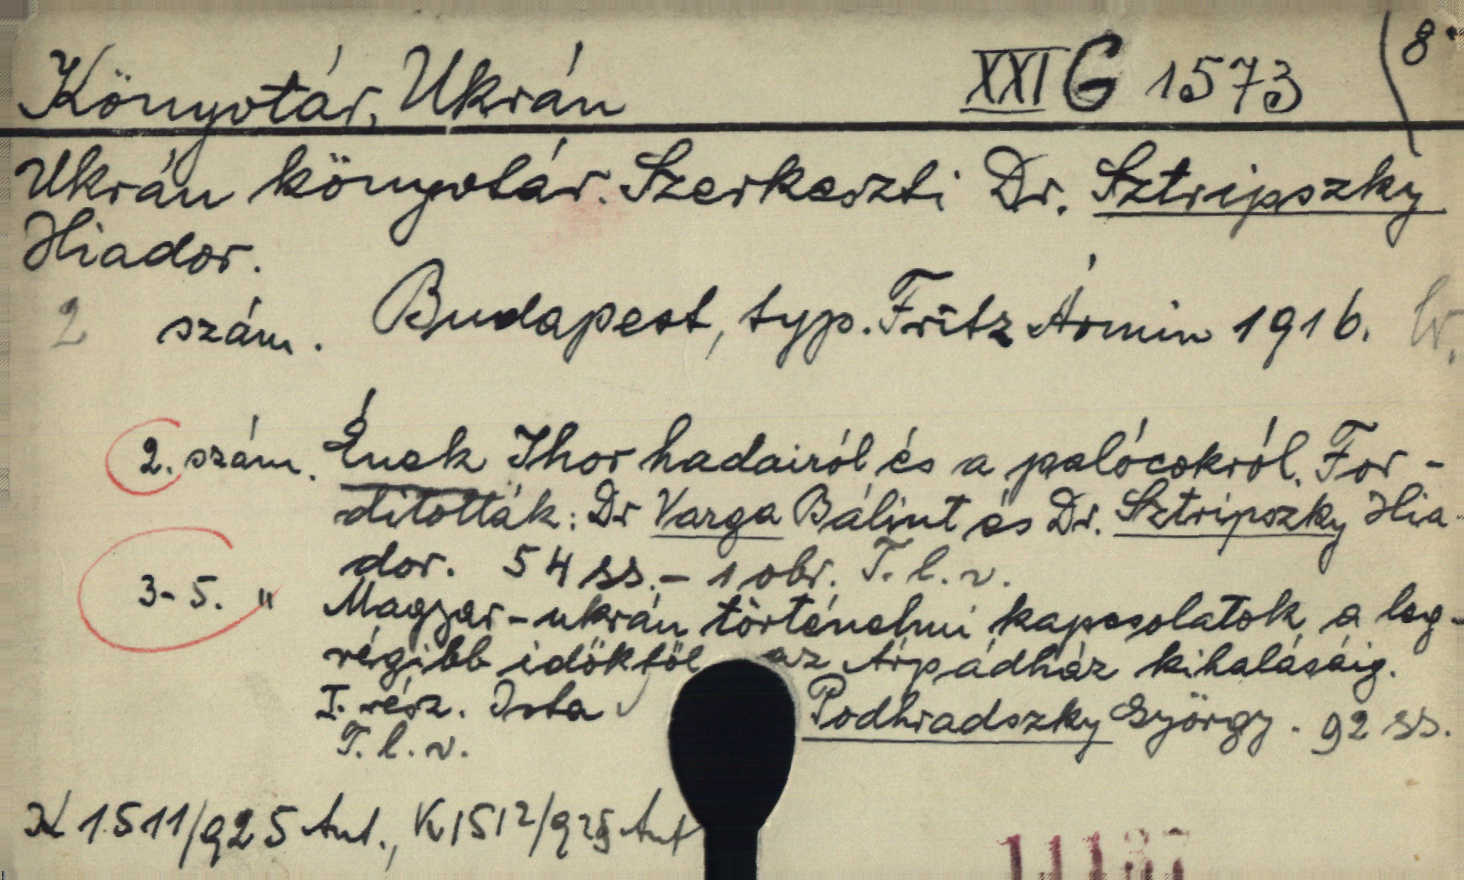 Könyvtár, Ukrán XXI G 1573 8°
Ukrán könyvtár. Szerkeszti Dr. Sztripszky
Hiador.
2 szám. Budapest, typ. Fritz Ármin 1916.
2. szám. Ének Ihor hadairól és a palócokról. For-
dították: Dr Varga Bálint és Dr. Sztripszky Hia-
dor. 54 ss. - 1 obr. T. l. v.
3-5. " Magyar-ukrán történelmi kapcsolatok a leg-
régibb időktől az Árpádház kihalásáig.
I. rész. Irta Podhradszky György. 92 ss.
T. l. v.
K 1511/925 Ant., K 1512/925 Ant